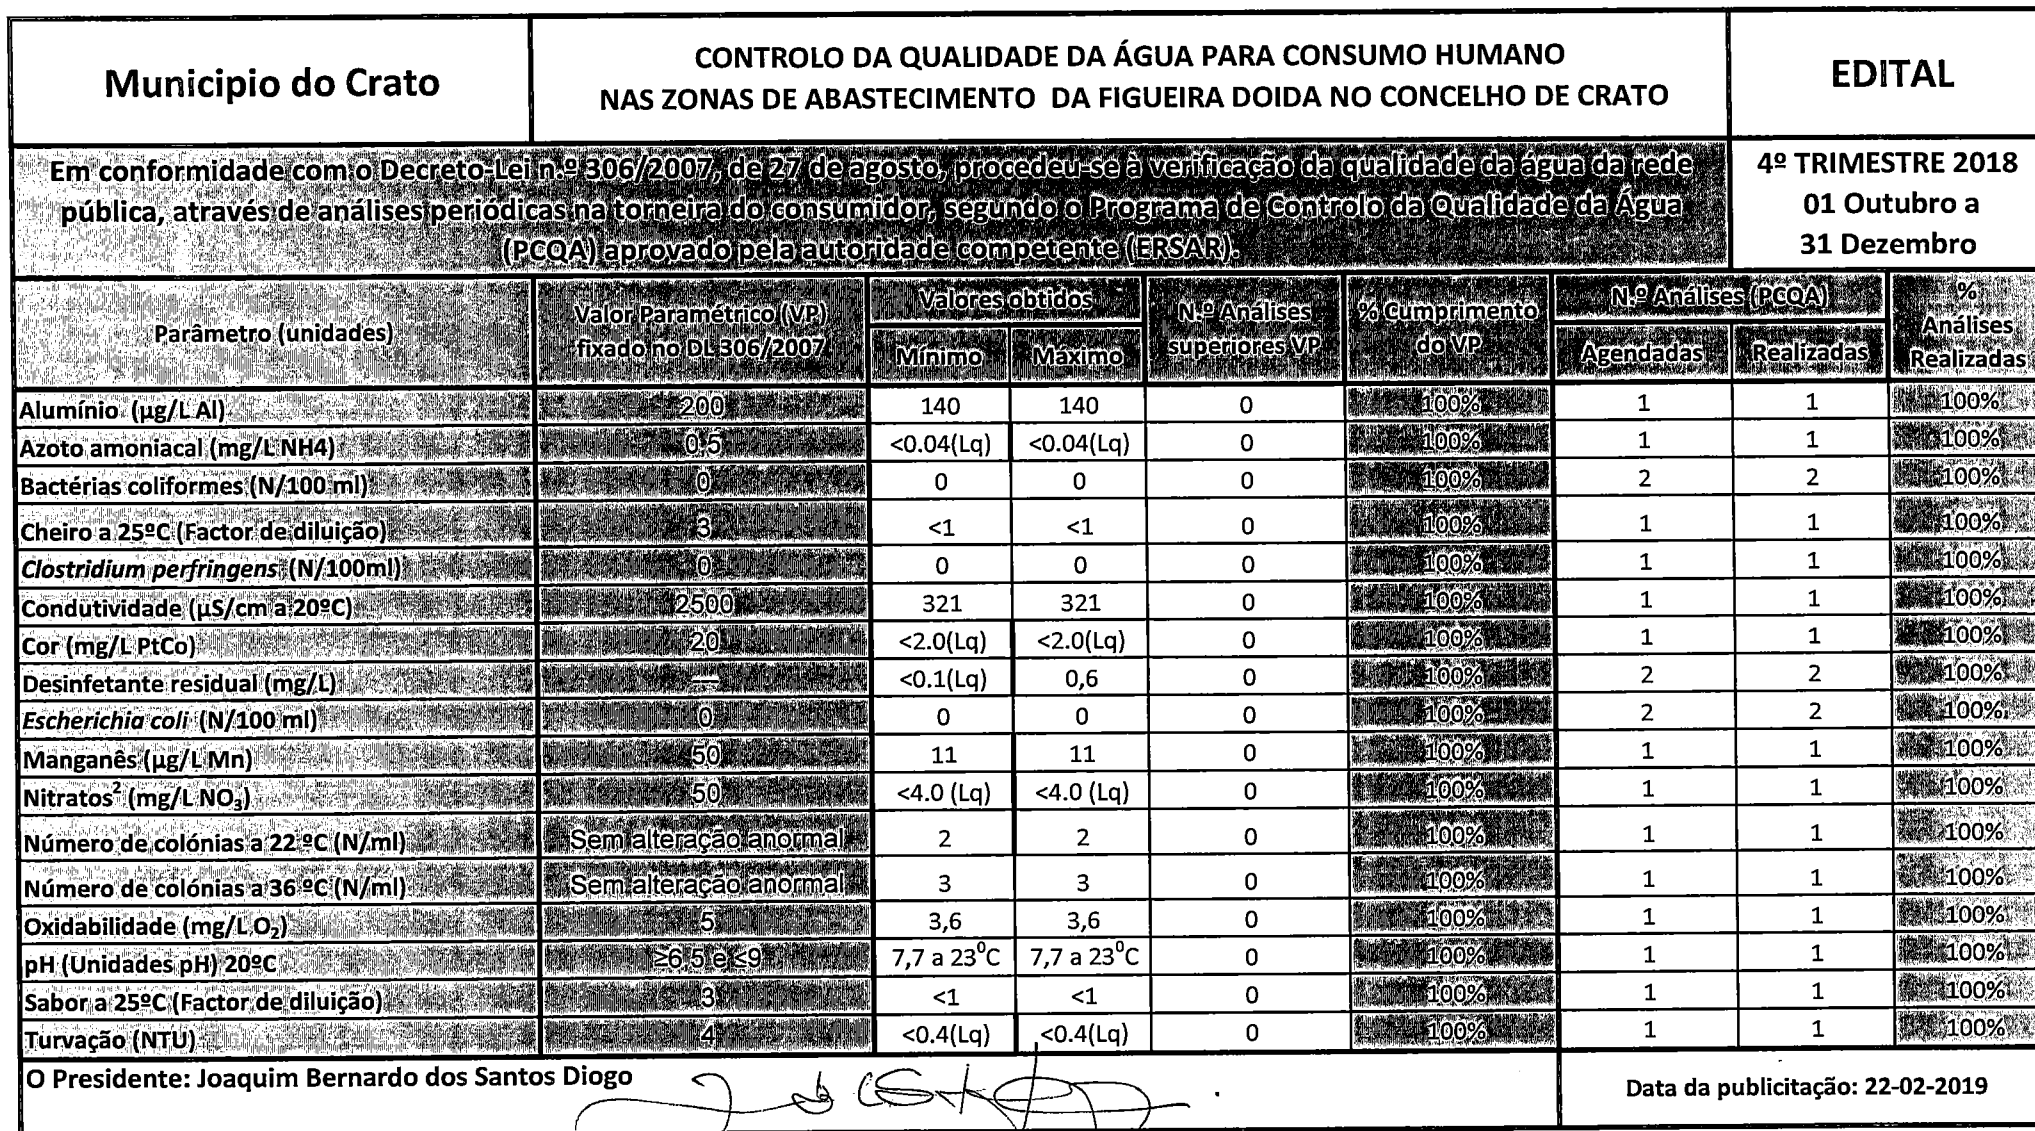 Municipio do Crato
CONTROLO DA QUALIDADE DA ÁGUA PARA CONSUMO HUMANO
NAS ZONAS DE ABASTECIMENTO DA FIGUEIRA DOIDA NO CONCELHO DE CRATO
EDITAL
Em conformidade com o Decreto-Lei n.º 306/2007, de 27 de agosto, procedeu-se à verificação da qualidade da água da rede
pública, através de análises periódicas na torneira do consumidor, segundo o Programa de Controlo da Qualidade da Água
(PCQA) aprovado pela autoridade competente (ERSAR).
4º TRIMESTRE 2018
01 Outubro a
31 Dezembro
Parâmetro (unidades)
Valor Paramétrico (VP)
fixado no DL 306/2007
Valores obtidos
Mínimo Máximo
N.º Análises
superiores VP
% Cumprimento
do VP
N.º Análises (PCQA)
Agendadas Realizadas
%
Análises
Realizadas
Alumínio (µg/L Al) 200 140 140 0 100% 1 1 100%
Azoto amoniacal (mg/L NH4) 0,5 <0.04(Lq) <0.04(Lq) 0 100% 1 1 100%
Bactérias coliformes (N/100 ml) 0 0 0 0 100% 2 2 100%
Cheiro a 25ºC (Factor de diluição) 3 <1 <1 0 100% 1 1 100%
Clostridium perfringens (N/100ml) 0 0 0 0 100% 1 1 100%
Condutividade (µS/cm a 20ºC) 2500 321 321 0 100% 1 1 100%
Cor (mg/L PtCo) 20 <2.0(Lq) <2.0(Lq) 0 100% 1 1 100%
Desinfetante residual (mg/L) — <0.1(Lq) 0,6 0 100% 2 2 100%
Escherichia coli (N/100 ml) 0 0 0 0 100% 2 2 100%
Manganês (µg/L Mn) 50 11 11 0 100% 1 1 100%
Nitratos² (mg/L NO₃) 50 <4.0 (Lq) <4.0 (Lq) 0 100% 1 1 100%
Número de colónias a 22 ºC (N/ml) Sem alteração anormal 2 2 0 100% 1 1 100%
Número de colónias a 36 ºC (N/ml) Sem alteração anormal 3 3 0 100% 1 1 100%
Oxidabilidade (mg/L O₂) 5 3,6 3,6 0 100% 1 1 100%
pH (Unidades pH) 20ºC ≥6,5 e ≤9 7,7 a 23⁰C 7,7 a 23⁰C 0 100% 1 1 100%
Sabor a 25ºC (Factor de diluição) 3 <1 <1 0 100% 1 1 100%
Turvação (NTU) 4 <0.4(Lq) <0.4(Lq) 0 100% 1 1 100%
O Presidente: Joaquim Bernardo dos Santos Diogo
Data da publicitação: 22-02-2019